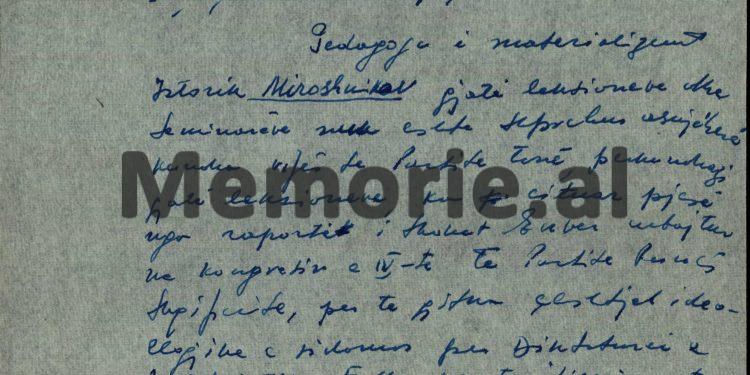 Pedagogu i materializmit
Istorik Miroshnikov gjatë leksioneve dhe
Seminareve nuk është shprehur asnjëherë
kundra vijës së Partisë tonë, përkundrazi
gjatë leksioneve, ka cituar pjesë
nga raporti i Shokut Enver mbajtur
në kongresin e IV-të të Partisë Punës
Shqipërisë, për të gjitha çështjet ideo-
llogjike e sidomos për Diktaturën e
Memorie.al